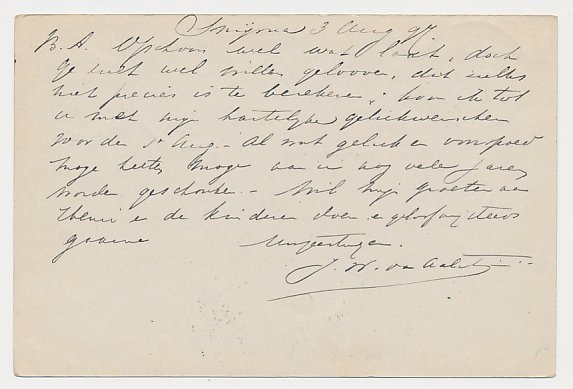 Smyrna 3 Aug 97
B. A. Ofschoon wel wat laat, doch
ge zult wel willen gelooven, dat zulks
niet precies is te berekenen; kom ik tot
u met mijn hartelijke gelukwenschen
voor den 5n Aug. - Al wat geluk en voorspoed
moge heeten moge aan u nog vele jaren
worden geschonken. - Wil mijn groeten aan
en de kinderen doen en geloof mij steeds
gaarne
J. W. van